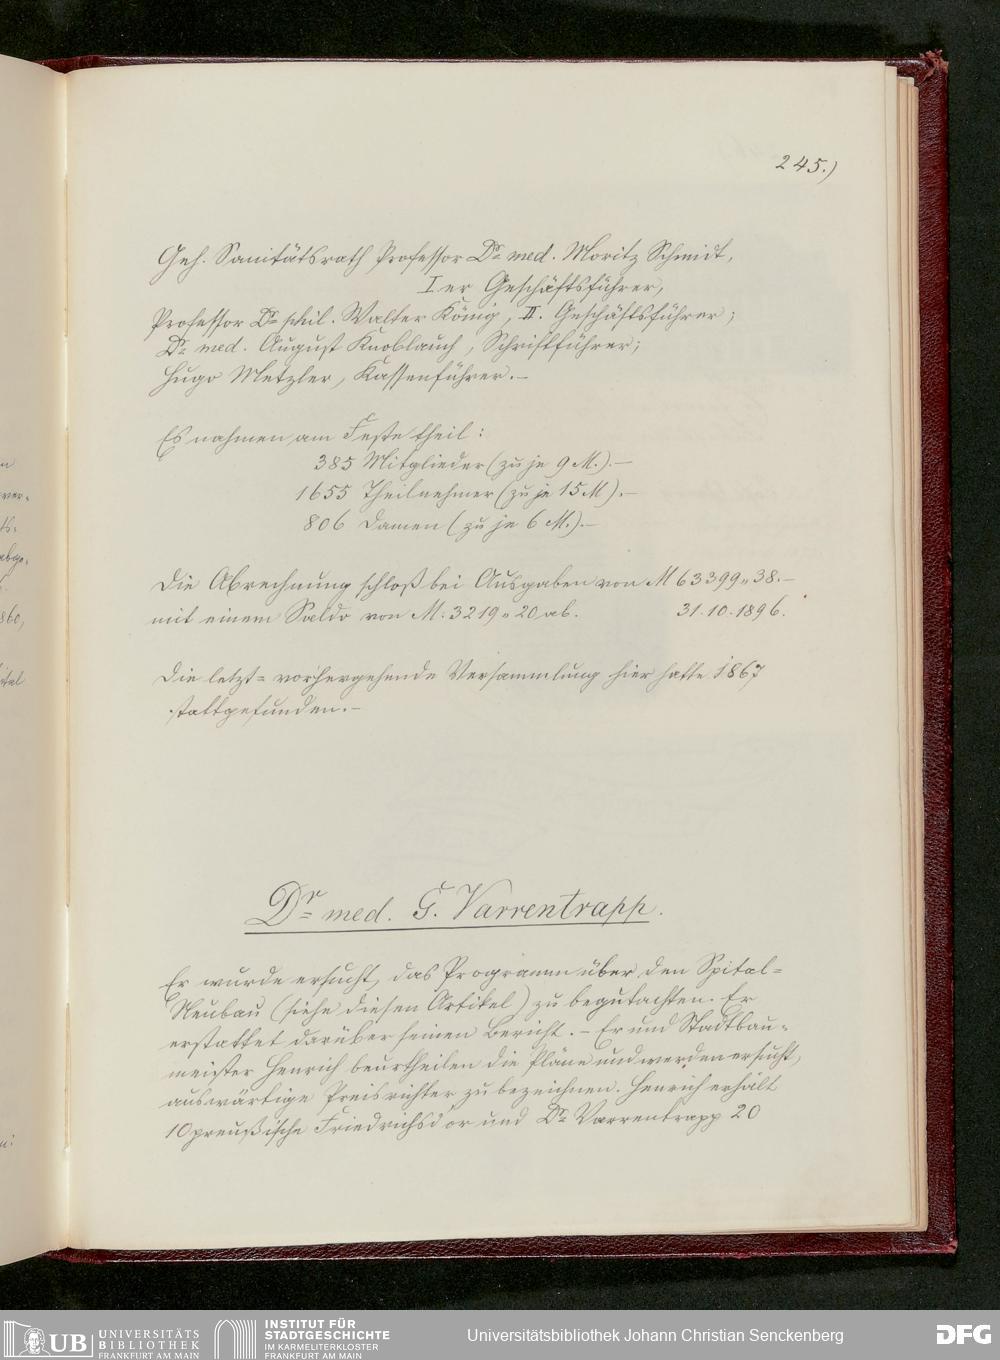 245.)
Geh. Sanitätsrath Professor Dr med. Moritz Schmidt,
I er Geschäftsführer,
Professor Dr phil. Walter König, II. Geschäftsführer;
Dr med. August Knoblauch, Schriftführer;
Hugo Metzler, Kassenführer.–
Es nahmen am Feste theil:
385 Mitglieder (zu je 9 M.).–
1655 Theilnehmer (zu je 15 M).–
806 Damen (zu je 6 M.).–
Die Abrechnung schloß bei Ausgaben von M 63399„38.–
mit einem Saldo von M. 3219„20 ab. 31.10.1896.
Die letzt= vorhergehende Versammlung hier hatte 1867
stattgefunden.–
Dr med. G. Varrentrapp.
Er wurde ersucht, das Programm über den Spital=
Neubau (siehe diesen Artikel) zu begutachten. Er
erstattet darüber seinen Bericht.– Er und Stadtbau=
meister Henrich beurtheilen die Pläne und werden ersucht,
auswärtige Preisrichter zu bezeichnen. Henrich erhält
10 preußische Friedrichsd'or und Dr Varrentrapp 20
n
ver=
ts=
abge=
860,
ital
n:
UB UNIVERSITÄTS
BIBLIOTHEK
FRANKFURT AM MAIN
INSTITUT FÜR
STADTGESCHICHTE
IM KARMELITERKLOSTER
FRANKFURT AM MAIN
Universitätsbibliothek Johann Christian Senckenberg
DFG